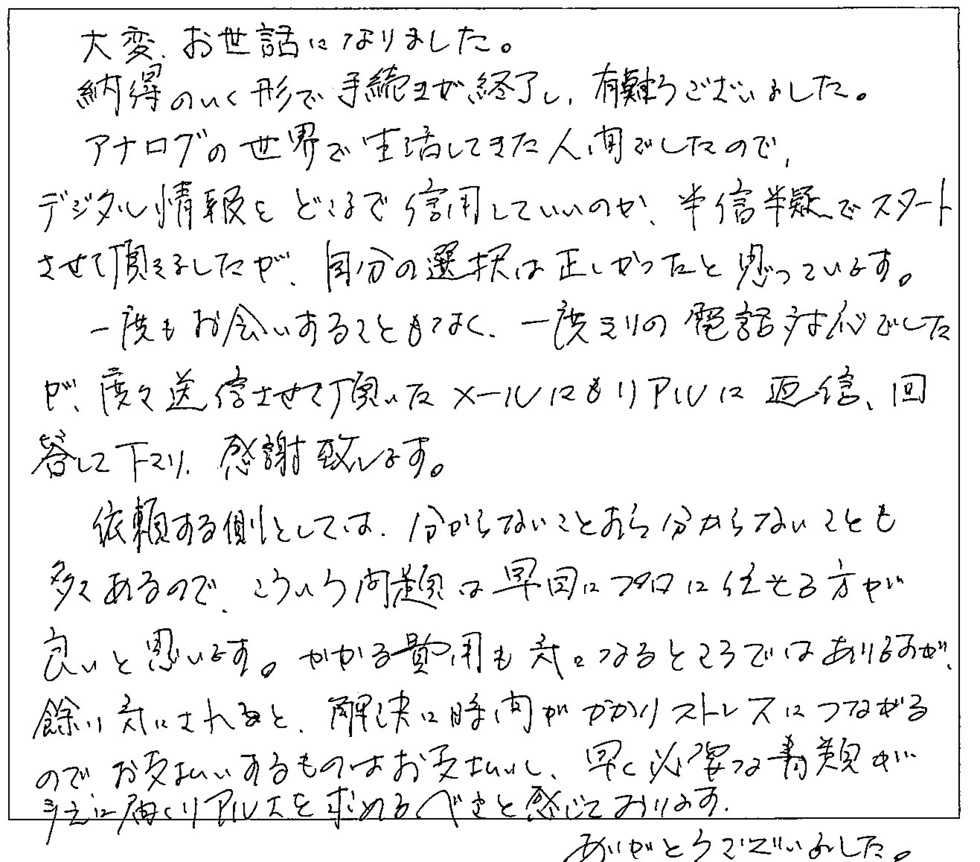 大変、お世話になりました。
納得のいく形で手続きが終了し、有難うございました。
アナログの世界で生活してきた人間でしたので、
デジタル情報をどこまで信用していいのか、半信半疑でスタート
させて頂きましたが、自分の選択は正しかったと思っています。
一度もお会いすることもなく、一度きりの電話対応でした
が、度々送信させて頂いたメールにもリアルに返信、回
答して下さり、感謝致します。
依頼する側としては、分からないことすら分からないことも
多くあるので、こういう問題は早目にプロに任せる方が
良いと思います。かかる費用も気になるところではありますが、
余り気にされると、解決に時間がかかりストレスにつながる
のでお支払いするものはお支払いし、早く必要な書類が
手元に届くリアルさを求めるべきと感じております。
ありがとうございました。